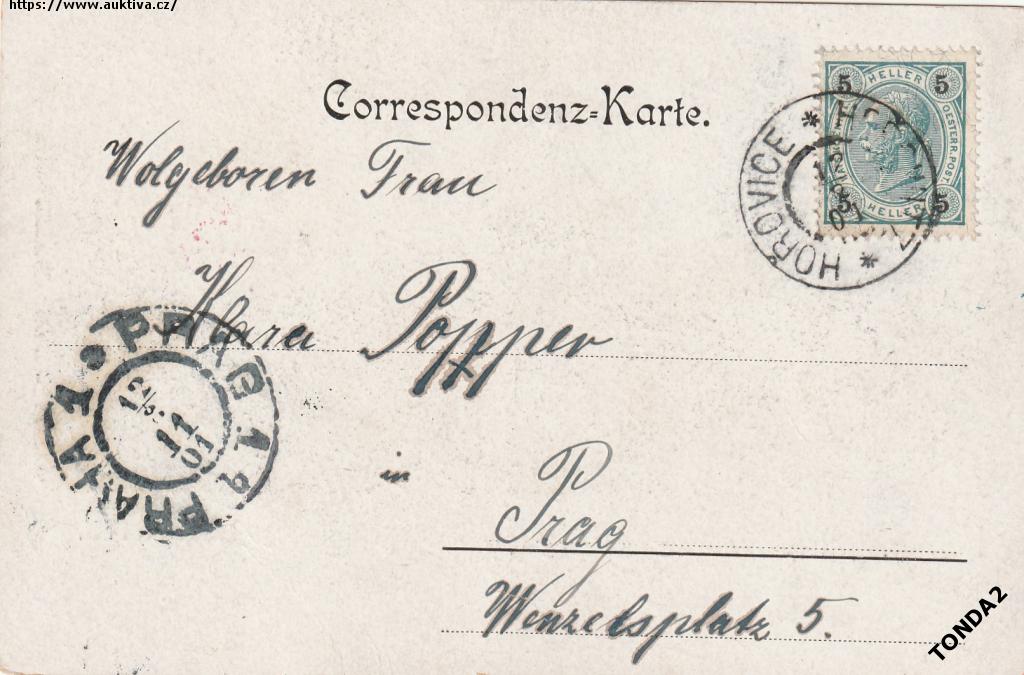 https://www.auktiva.cz/
Correspondenz=Karte.
5 HELLER 5
OESTERR. POST
5 HELLER 5
* HOROVICE *
Wolgeboren Frau
Klara Popper
PRAG 1
PRAHA 1
11
01
in
Prag
Wenzelsplatz 5.
TONDA2